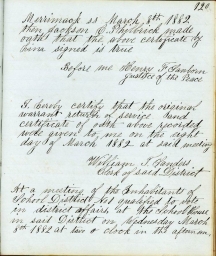 120
Merrimack ss March 8th, 1882.
then Jackson C. Philbrick made
oath that the above certificate by
him signed is true
Before me Henry F. Sanborn
Justice of the Peace
I hereby certify that the original
warrant return of service and
certificate of oath above recorded
were given to me on the eight
day of March 1882 at said meeting
William T. Sanders
Clerk of said District
At a meeting of the Inhabitants of
School District No1 qualified to vote
in district affairs at the School House
in said District on Wednesday March
8th 1882 at two o clock in the afternoon,